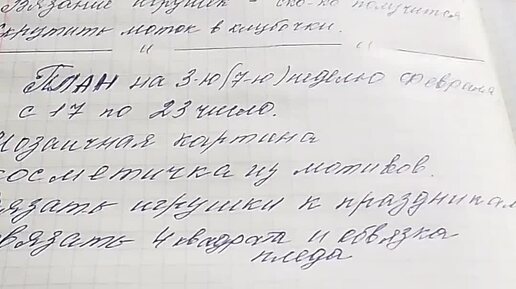 Вязание игрушек - ско-ко получится
скрутить моток в клубочки.
"     "
ПЛАН на 3-ю (7-ю) неделю февраля
с 17 по 23 число.
Мозаичная картина
косметичка из мотивов.
вязать игрушки к праздникам
связать 4 квадрата и обвязка
пледа